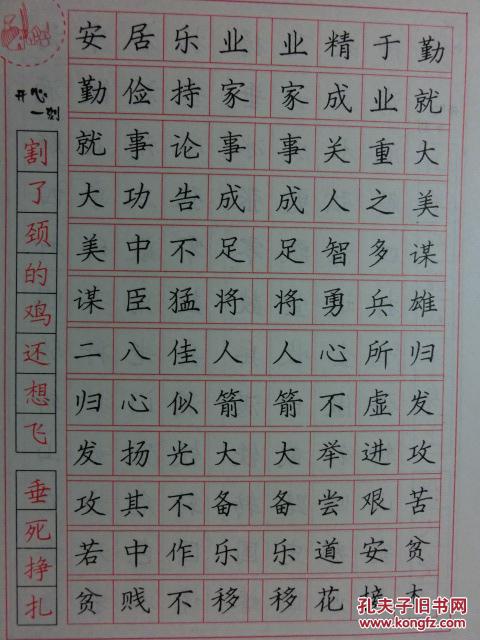 开心
一刻
割了颈的鸡还想飞
垂死挣扎
安居乐业 业精于勤
勤俭持家 家成业就
就事论事 事关重大
大功告成 成人之美
美中不足 足智多谋
谋臣猛将 将勇兵雄
二八佳人 人心所归
归心似箭 箭不虚发
发扬光大 大举进攻
攻其不备 备尝艰苦
苦中作乐 乐道安贫
贫贱不移 移花接
孔夫子旧书网